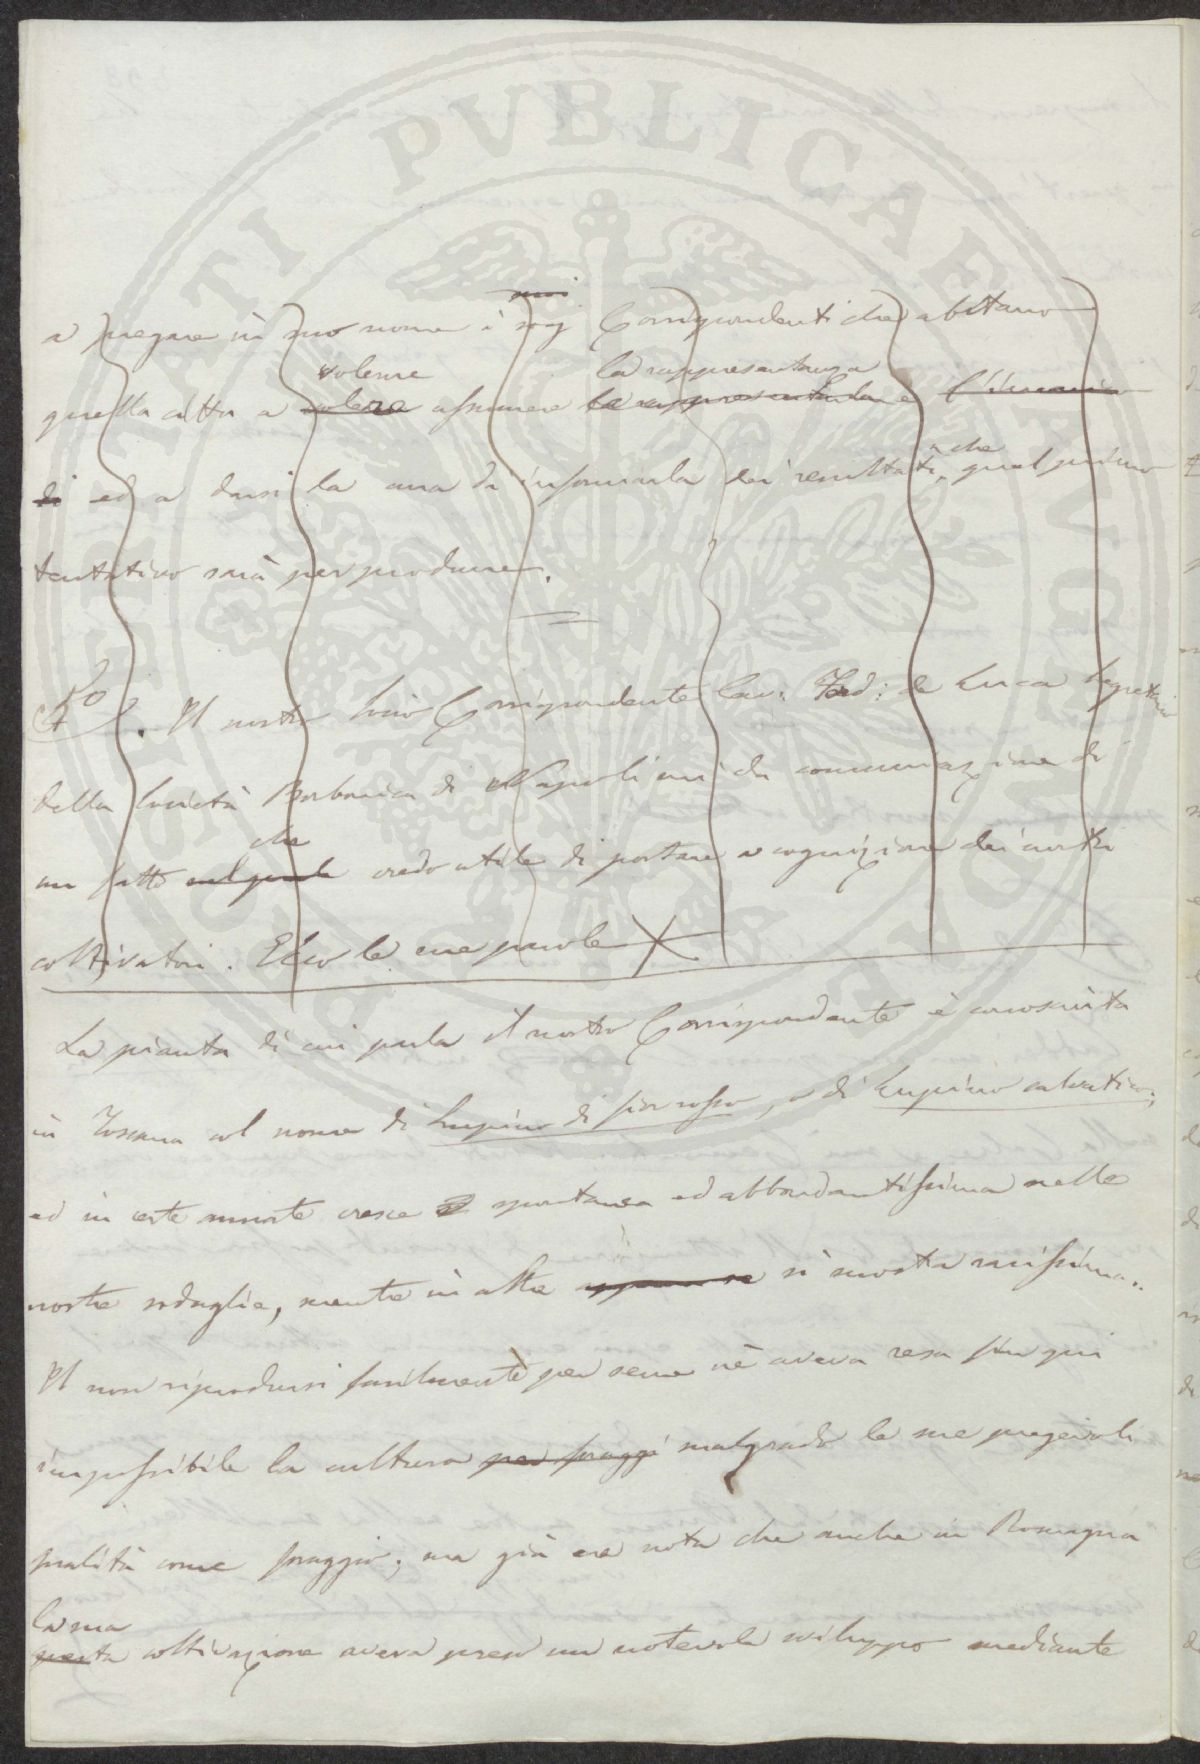 PROSPERITATI PVBLICAE AVGENDAE
a pregare in suo nome i sigg Corrispondenti che abitano
volerne la rappresentanza
quella città a volere assumere la rappresentanza e l'incarico
che
di ed a darsi la cura di informarla dei resultati, qual primo
tentativo sarà per produrre.
Il nostro Socio Corrispondente Cav: Ferd: de Luca Segretario
della Società Borbonica di Napoli mi dà comunicazione di
che
un fatto nel quale credo utile di portare a cognizione dei nostri
coltivatori. Ecco le sue parole
La pianta di cui parla il nostro Corrispondente è conosciuta
in Toscana col nome di Lupino di fior rosso, o di Lupino salvatico;
ed in certe annate cresce spontanea ed abbondantissima nelle
nostre sodaglie, mentre in altre appena se si mostra rarissima.
Il non riprodursi facilmente per seme nè aveva resa fin qui
impossibile la cultura per foraggi malgrado le sue pregevoli
qualità come foraggio; ma già era nota che anche in Romagna
la sua
questa coltivazione aveva preso un notevole sviluppo mediante